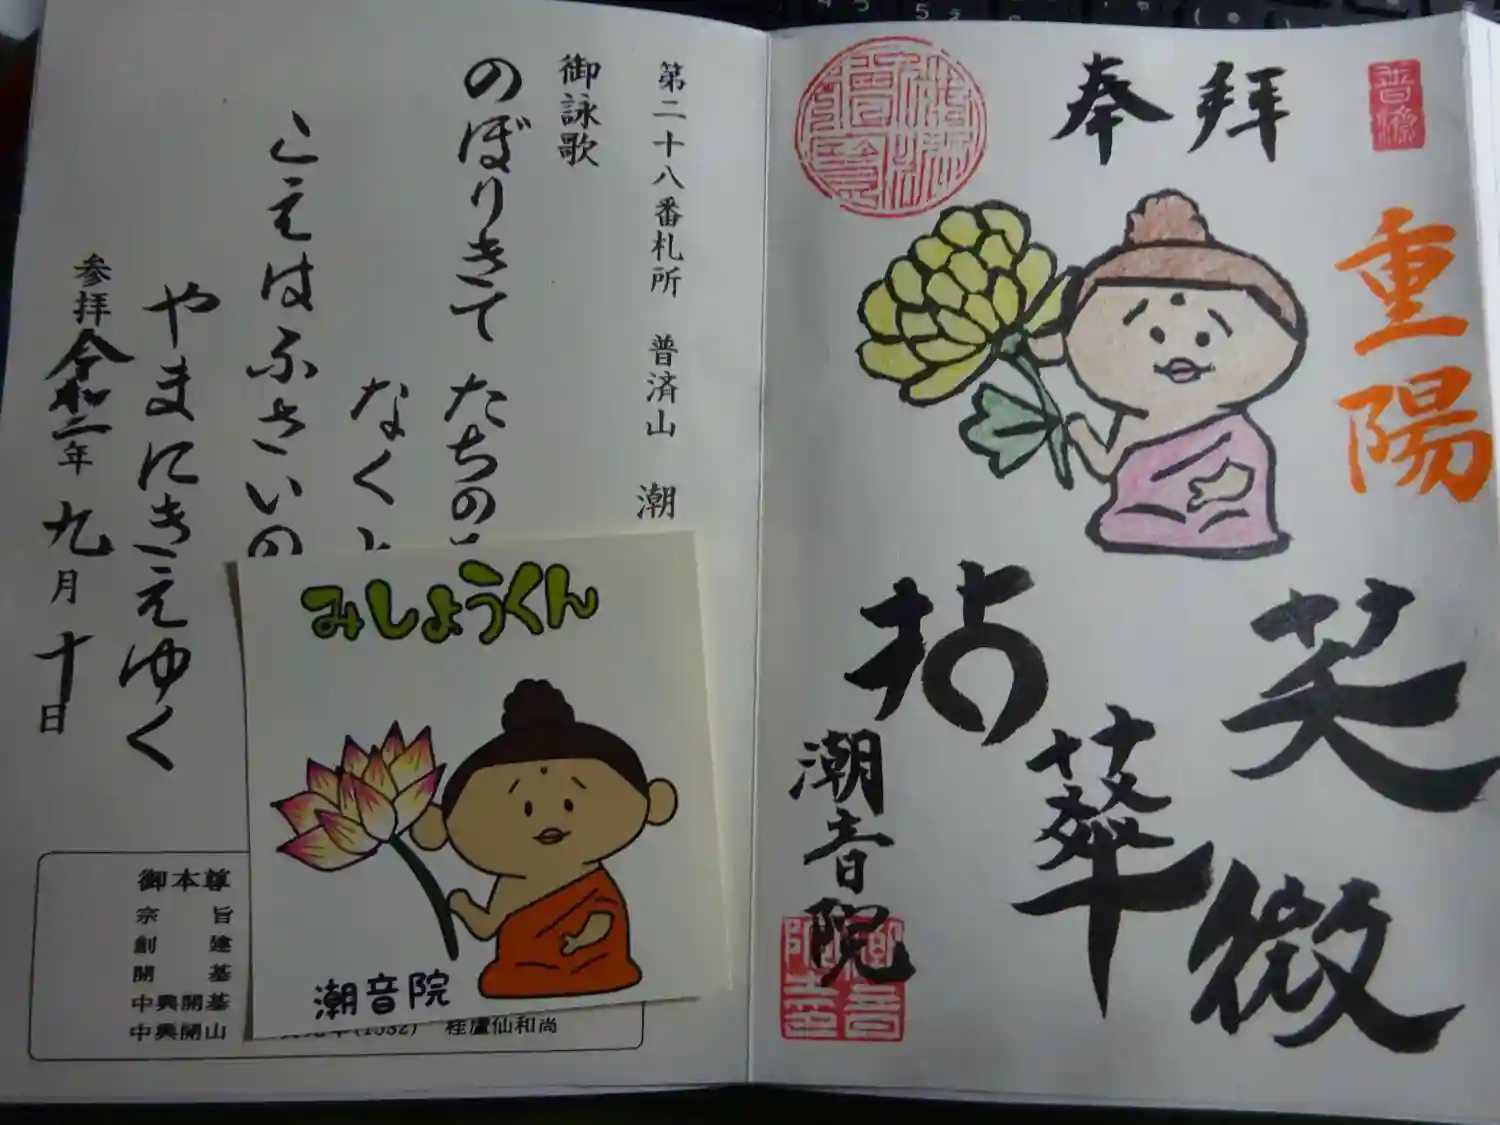 奉拝
重陽
拈華微笑
潮音院
普済
第二十八番札所　普済山　潮
御詠歌
のぼりきて　たちの
なく
こえはふさいの
やまにきえゆく
参拝　令和二年　九月　十日
みしょうくん
潮音院
御本尊
宗旨
創建
開基
中興開基
中興開山
桂盧仙和尚